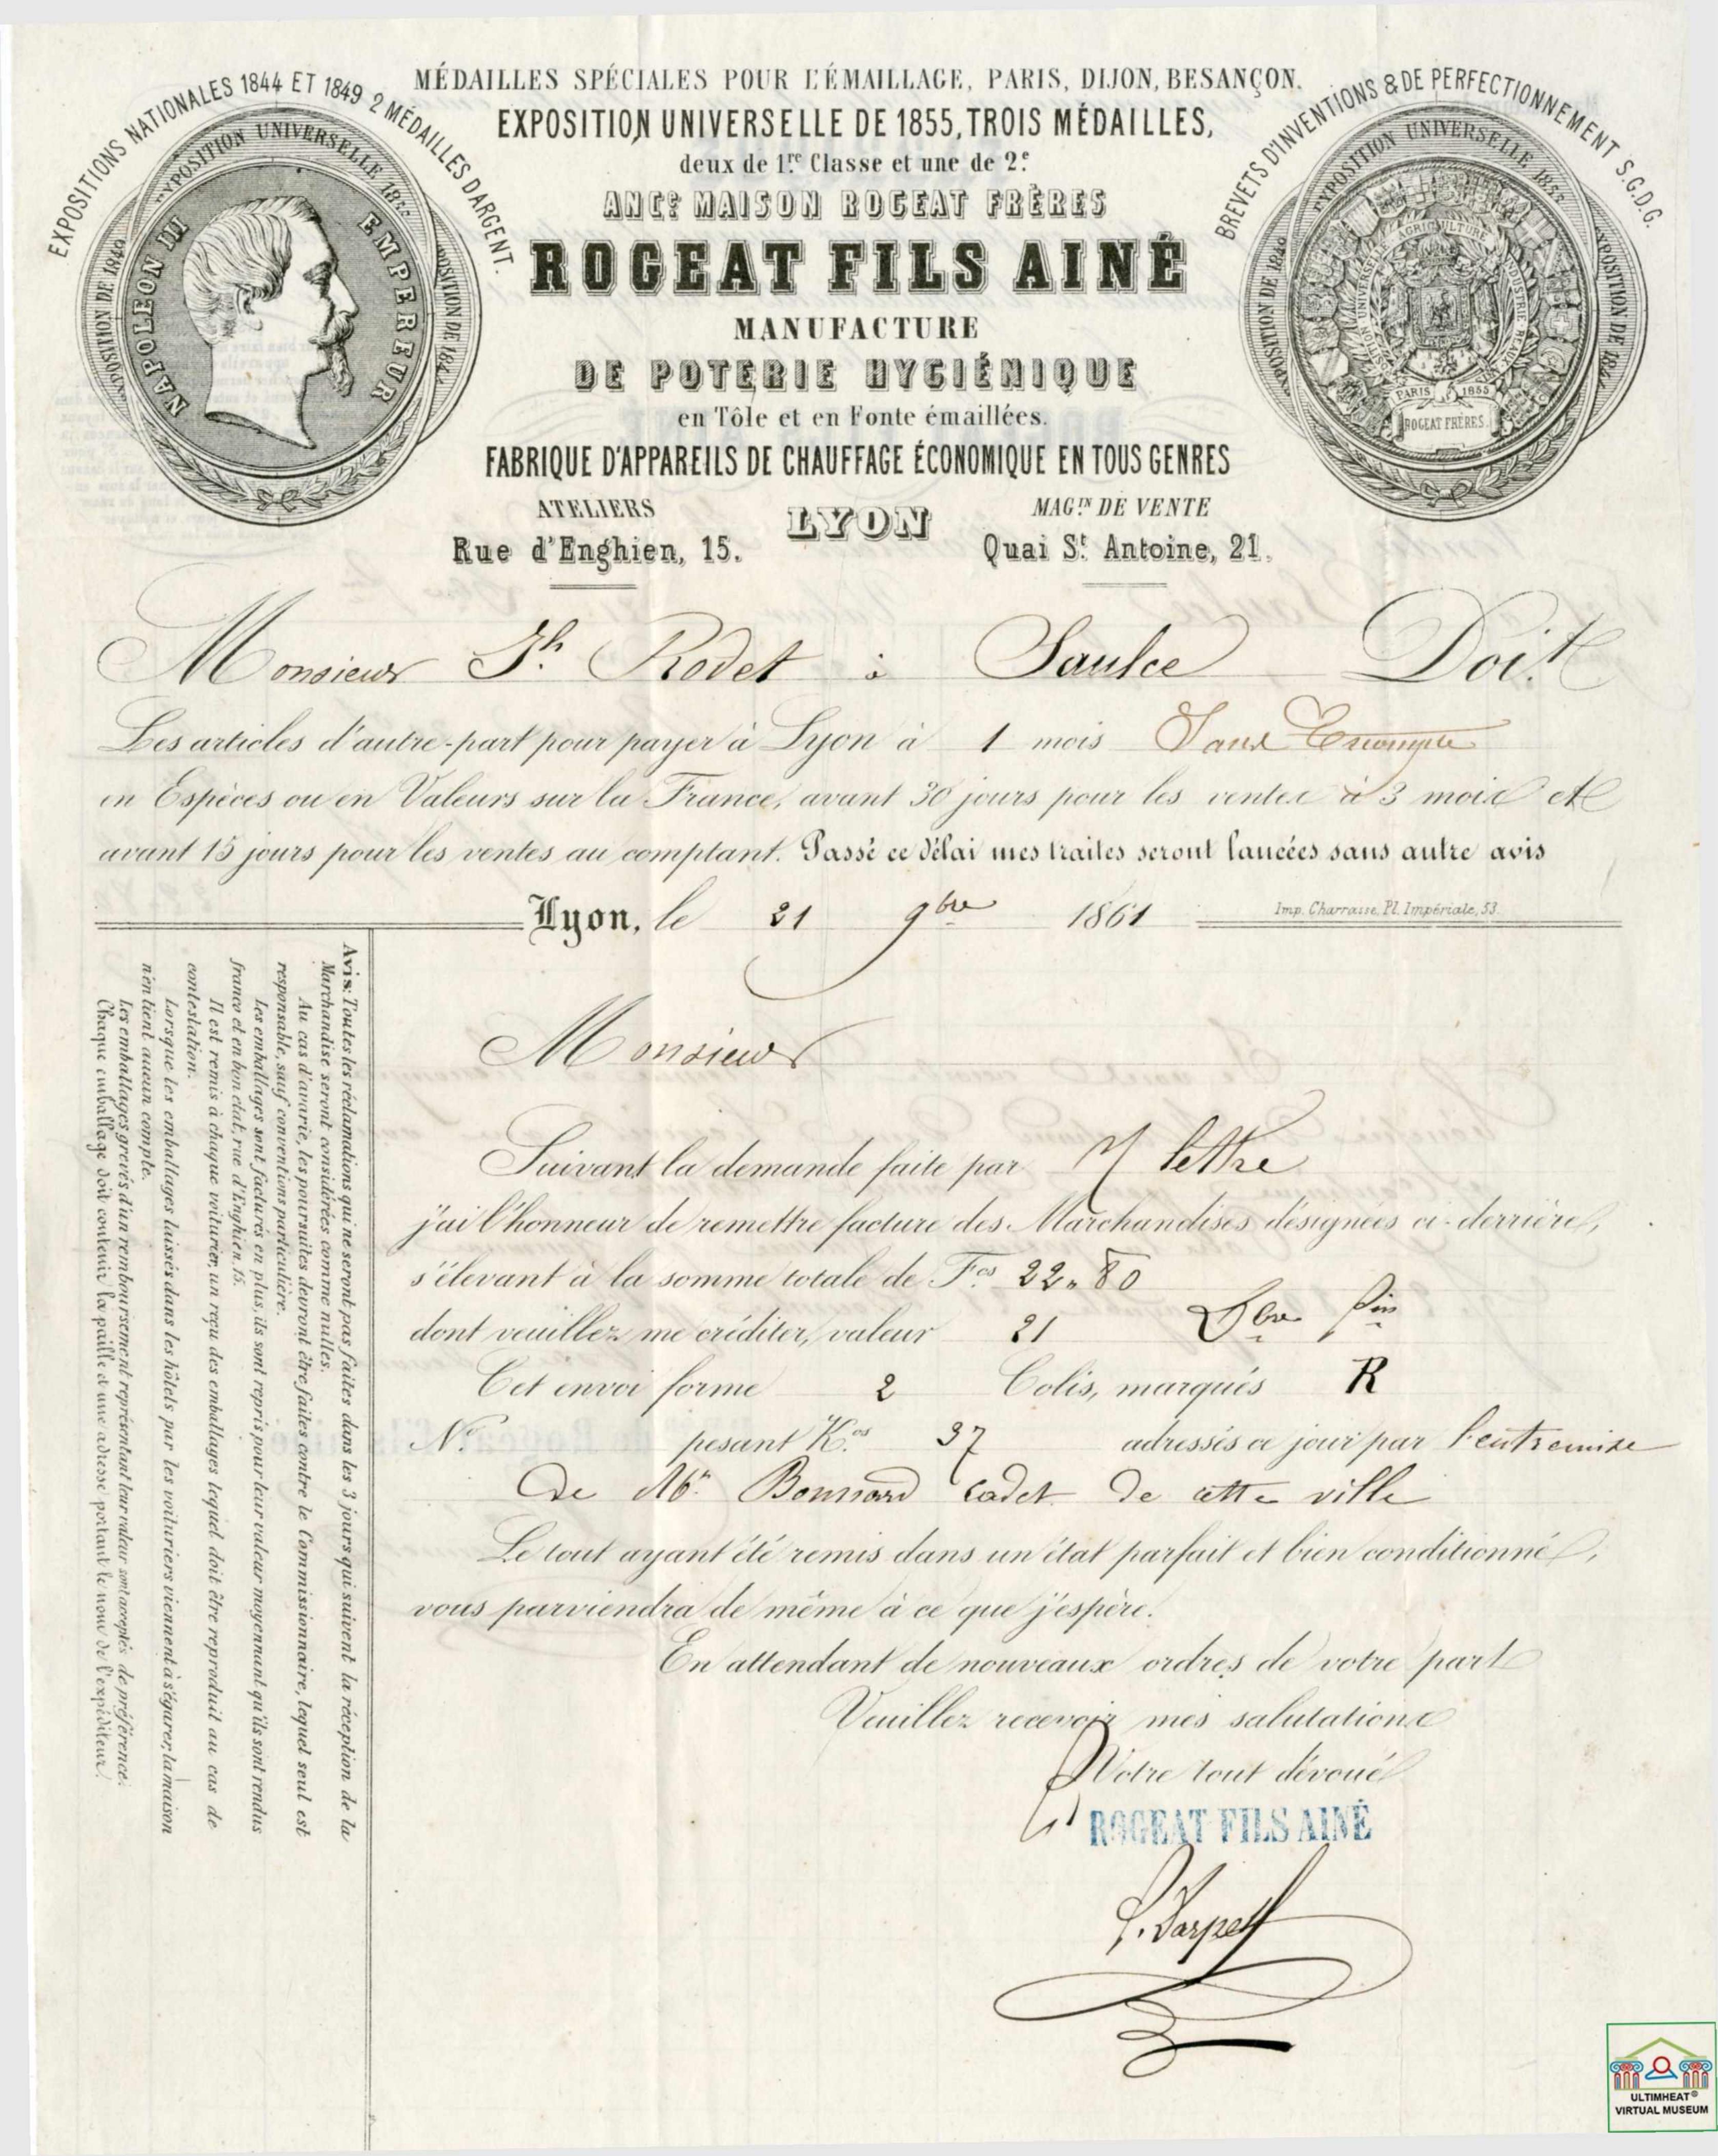 EXPOSITIONS NATIONALES 1844 ET 1849 2 MÉDAILLES D'ARGENT.
EXPOSITION UNIVERSELLE
EXPOSITION DE 1849
NAPOLEON III EMPEREUR
MÉDAILLES SPÉCIALES POUR L'ÉMAILLAGE, PARIS, DIJON, BESANÇON.
EXPOSITION UNIVERSELLE DE 1855, TROIS MÉDAILLES,
deux de 1re Classe et une de 2e
ANCe MAISON ROGEAT FRÈRES
ROGEAT FILS AINÉ
MANUFACTURE
DE POTERIE HYGIÉNIQUE
en Tôle et en Fonte émaillées.
FABRIQUE D'APPAREILS DE CHAUFFAGE ÉCONOMIQUE EN TOUS GENRES
ATELIERS
Rue d'Enghien, 15.
LYON
MAGIN DE VENTE
Quai St Antoine, 21.
BREVETS D'INVENTIONS & DE PERFECTIONNEMENT S.G.D.G.
EXPOSITION UNIVERSELLE 1855
EXPOSITION DE 1849
AGRICULTURE
INDUSTRIE BEAUX
PARIS 1855
ROGEAT FRÈRES
Monsieur Jh Rodet à Saulce Doit
Les articles d'autre-part pour payer à Lyon à 1 mois Sans Escompte
en Espèces ou en Valeurs sur la France, avant 30 jours pour les ventes à 3 mois et
avant 15 jours pour les ventes au comptant. Passé ce délai mes traites seront lancées sans autre avis
Lyon, le 21 9bre 1861
Imp. Charrasse, Pl. Impériale, 53.
Monsieur
Suivant la demande faite par lettre
j'ai l'honneur de remettre facture des Marchandises désignées ci-derrière,
s'élevant à la somme totale de Fcs 22,80
dont veuillez me créditer, valeur 21 Xbre
Cet envoi forme 2 Colis, marqués R
No pesant Kos 37 adressés ce jour par l'entremise
de Mr Bonnard Cadet de cette ville
Le tout ayant été remis dans un état parfait et bien conditionné,
vous parviendra de même à ce que j'espère.
En attendant de nouveaux ordres de votre part
Veuillez recevoir mes salutations
Votre tout dévoué
ROGEAT FILS AINÉ
Avis: Toutes les réclamations qui ne seront pas faites dans les 3 jours qui suivent la réception de la
Marchandise seront considérées comme nulles.
Au cas d'avarie, les poursuites devront être faites contre le Commissionnaire, lequel seul est
responsable, sauf conventions particulière.
Les emballages sont facturés en plus, ils sont repris pour leur valeur moyennant qu'ils sont rendus
franco et en bon état, rue d'Enghien, 15.
Il est remis à chaque voiturier, un reçu des emballages lequel doit être reproduit au cas de
contestation.
Lorsque les emballages laissés dans les hôtels par les voituriers viennent à s'égarer, la maison
n'en tient aucun compte.
Les emballages grevés d'un remboursement représentant leur valeur sont acceptés de préférence.
Chaque emballage doit contenir la paille et une adresse portant le nom de l'expéditeur.
ULTIMHEAT®
VIRTUAL MUSEUM